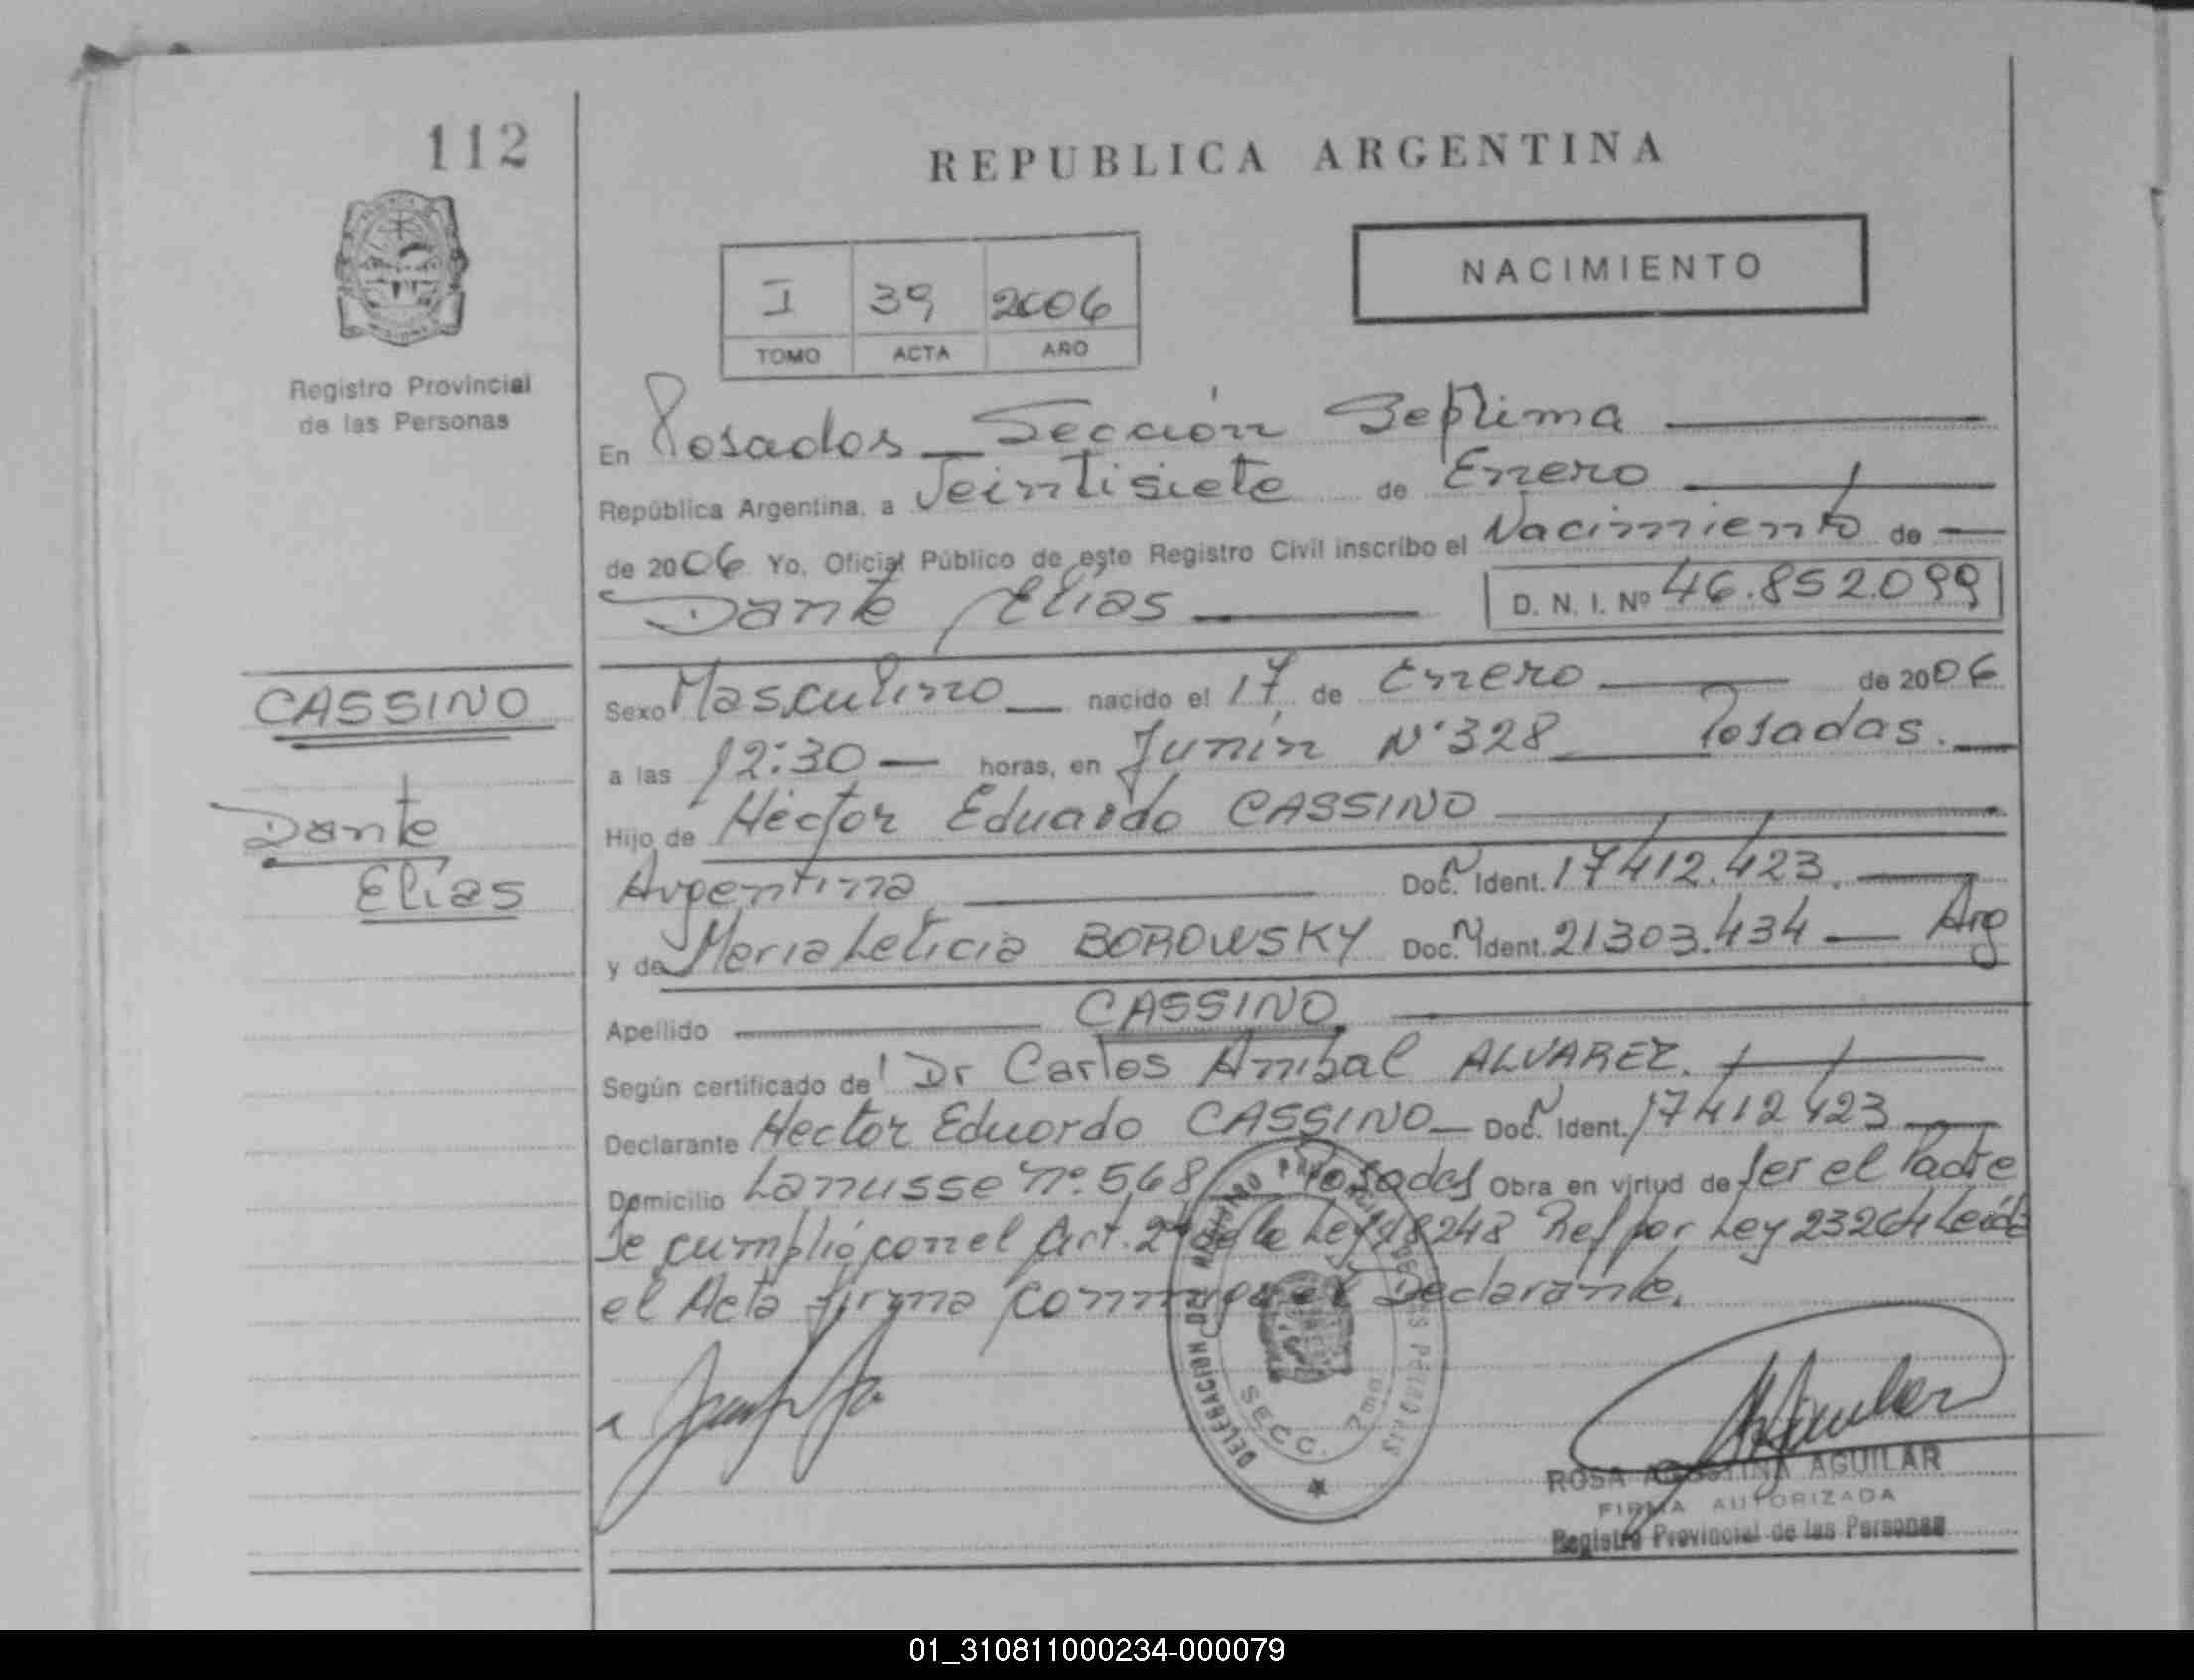 112
REPUBLICA ARGENTINA
NACIMIENTO
I 39 2006
TOMO ACTA AÑO
Registro Provincial
de las Personas
En Posadas Sección Septima
República Argentina, a Veintisiete de Enero
de 2006 Yo, Oficial Público de este Registro Civil inscribo el Nacimiento de
Dante Elias D. N. I. Nº 46.852.099
CASSINO
Dante
Elías
Sexo Masculino nacido el 17 de Enero de 2006
a las 12:30 horas, en Junín Nº 328 Posadas.
Hijo de Héctor Eduardo CASSINO
Argentina Doc. N Ident. 17412.423.
y de Maria Leticia BOROWSKY Doc. N Ident. 21303.434 Arg
Apellido CASSINO
Según certificado de Dr Carlos Anibal ALVAREZ.
Declarante Hector Eduardo CASSINO Doc. N Ident. 17412423
Domicilio Lanusse nº 568 Posadas Obra en virtud de ser el Padre
Se cumplió con el Art. 2º de la Ley 18248 Ref por Ley 23264 Leída
el Acta firma conmigo el Declarante.
SECC. 7ma
ROSA AGUSTINA AGUILAR
FIRMA AUTORIZADA
Registro Provincial de las Personas
01_310811000234-000079